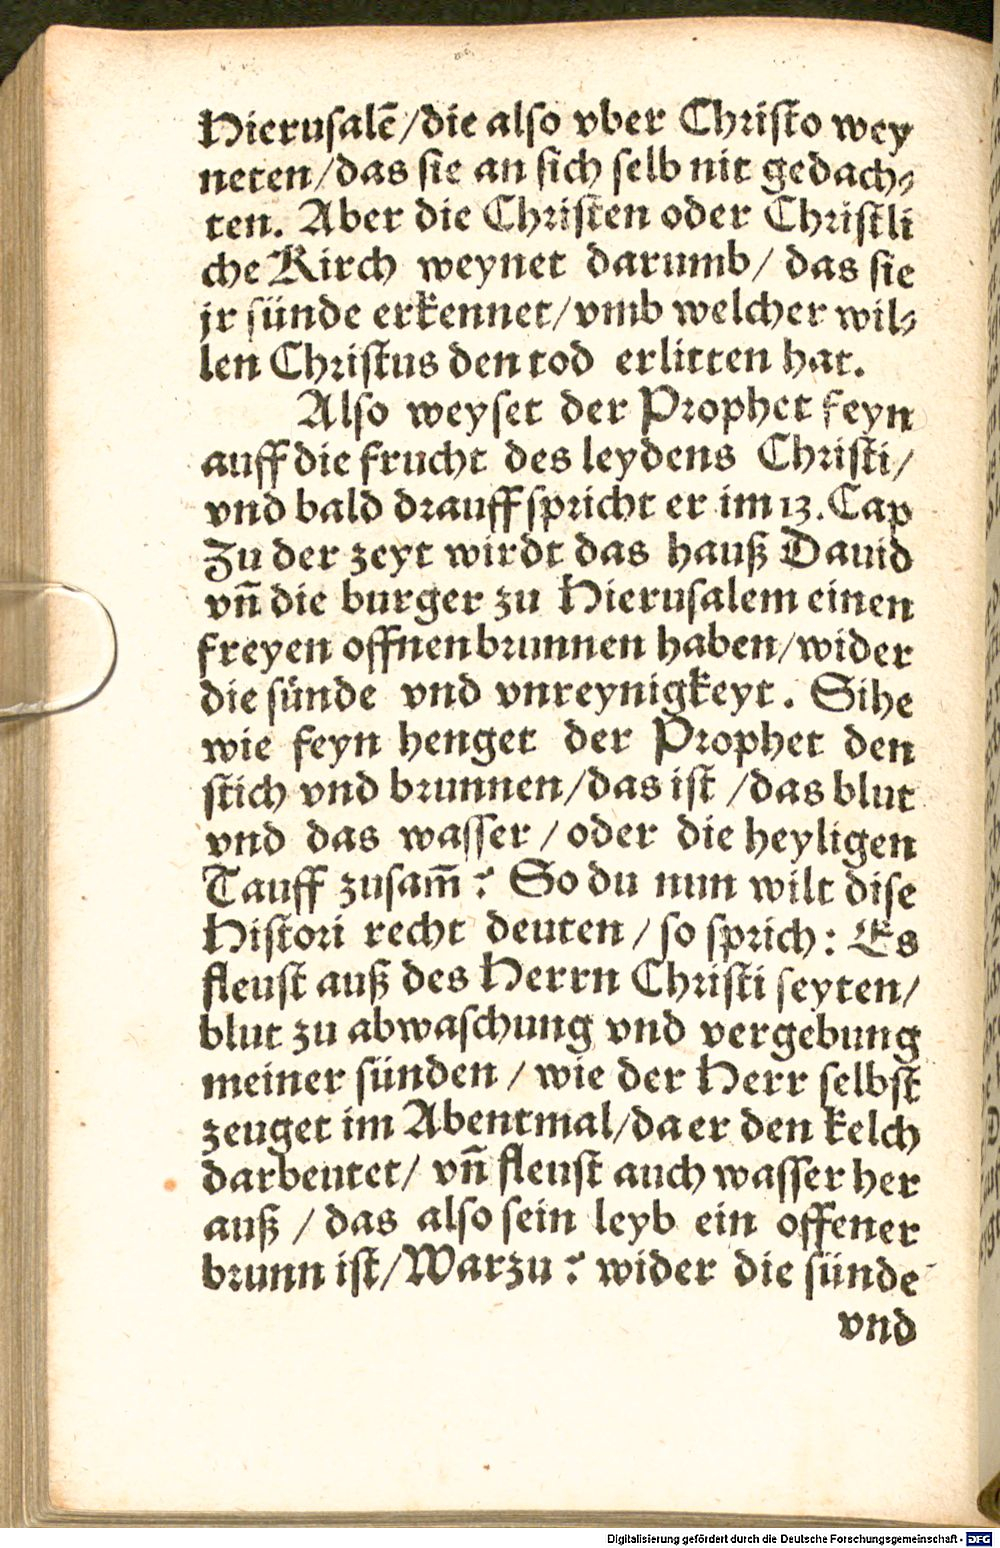 Hierusalē/die also vber Christo wey
neten/das sie an sich selb nit gedach⸗
ten. Aber die Christen oder Christli
che Kirch weynet darumb/ das sie
jr sünde erkennet/vmb welcher wil⸗
len Christus den tod erlitten hat.
Also weyset der Prophet feyn
auff die frucht des leydens Christi/
vnd bald drauff spricht er im 13. Cap
Zu der zeyt wirdt das hauß Dauid
vn̄ die burger zu Hierusalem einen
freyen offnen brunnen haben/wider
die sünde vnd vnreynigkeyt. Sihe
wie feyn henget der Prophet den
stich vnd brunnen/das ist /das blut
vnd das wasser / oder die heyligen
Tauff zusam̄? So du nun wilt dise
Histori recht deuten / so sprich: Es
fleust auß des Herrn Christi seyten/
blut zu abwaschung vnd vergebung
meiner sünden / wie der Herr selbst
zeuget im Abentmal/da er den kelch
darbeutet/ vn̄ fleust auch wasser her
auß / das also sein leyb ein offener
brunn ist/Warzu? wider die sünde
vnd
Digitalisierung gefördert durch die Deutsche Forschungsgemeinschaft - DFG